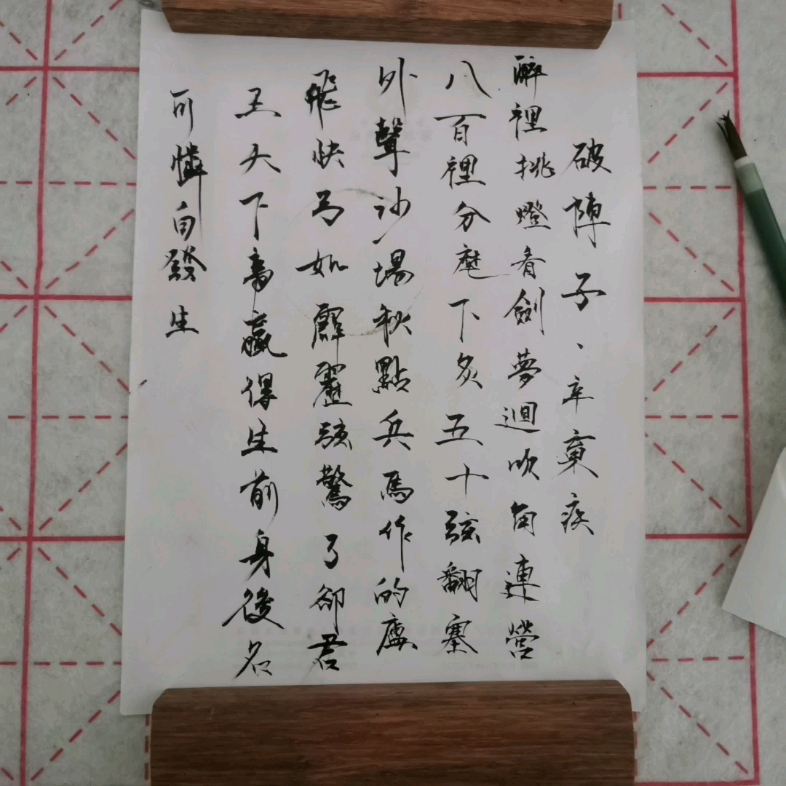 破陣子、辛棄疾
醉裡挑燈看劍夢迴吹角連營
八百裡分麾下炙五十弦翻塞
外聲沙場秋點兵馬作的盧
飛快弓如霹靂弦驚了卻君
王天下事贏得生前身後名
可憐白發生